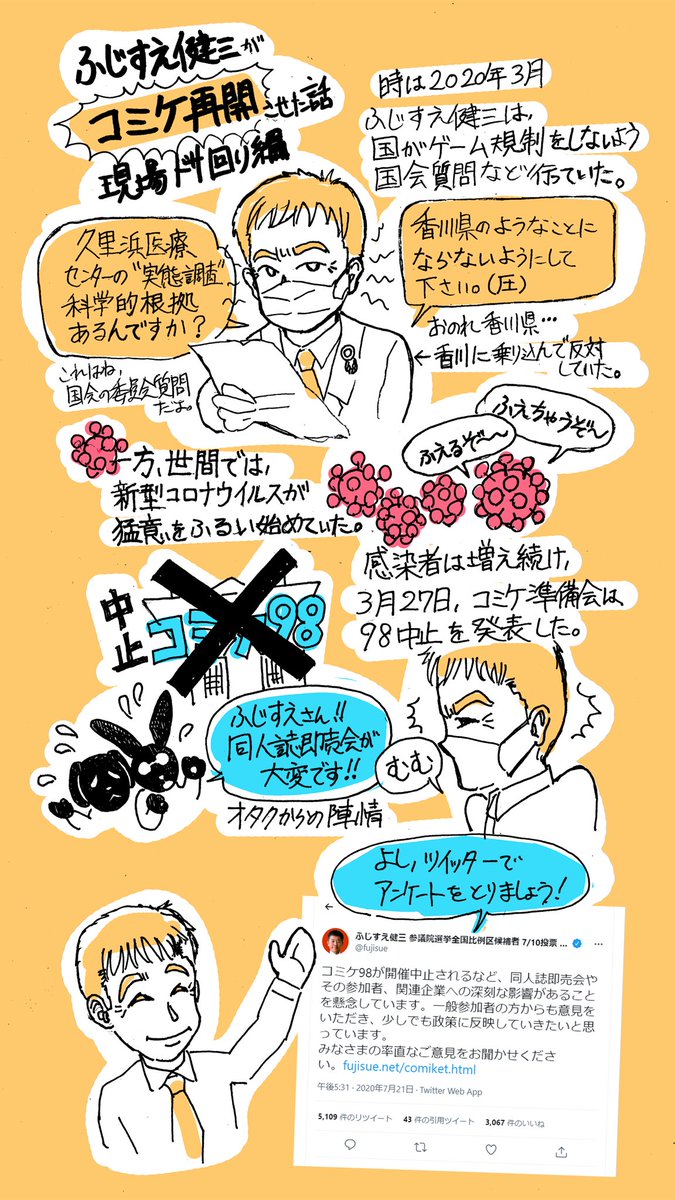 ふじすえ健三が
コミケ再開させた話
現場ドサ回り編
時は2020年3月
ふじすえ健三は、
国がゲーム規制をしないよう
国会質問など行っていた。
久里浜医療
センターの"実態調査"
科学的根拠
あるんですか?
これはね、
国会の委員会質問
だよ。
香川県のようなことに
ならないようにして
下さい。(圧)
おのれ香川県…
←香川に乗り込んで反対
していた。
一方、世間では、
新型コロナウイルスが
猛意をふるい始めていた。
ふえるぞ〜
ふえちゃうぞ〜
感染者は増え続け、
3月27日、コミケ準備会は
98中止を発表した。
中止
コミケ98
ふじすえさん!!
同人誌即売会が
大変です!!
オタクからの陣情
むむ
よし、ツイッターで
アンケートをとりましょう!
ふじすえ健三 参議院選挙全国比例区候補者 7/10投票 ...
@fujisue
コミケ98が開催中止されるなど、同人誌即売会や
その参加者、関連企業への深刻な影響があること
を懸念しています。一般参加者の方からも意見を
いただき、少しでも政策に反映していきたいと思
っています。
みなさまの率直なご意見をお聞かせくださ
い。fujisue.net/comiket.html
午後5:31 · 2020年7月21日 · Twitter Web App
5,109 件のリツイート 43 件の引用ツイート 3,067 件のいいね